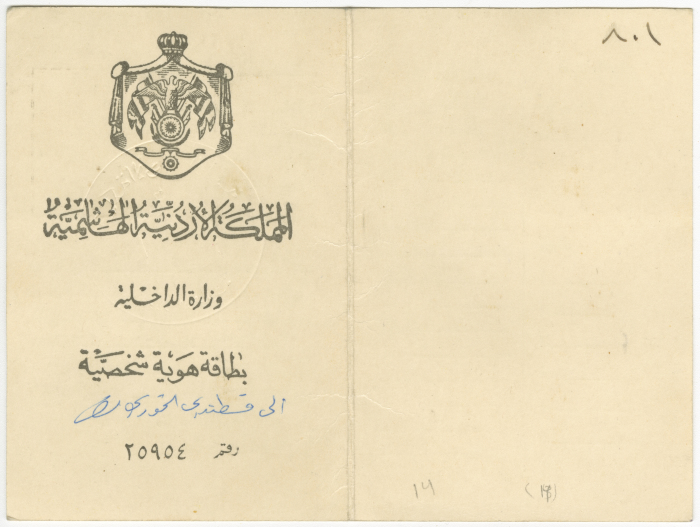 المملكة الأردنية الهاشمية
وزارة الداخلية
بطاقة هوية شخصية
الى قسطندي الخوري
رقم ٢٥٩٥٤
٨٠١
14